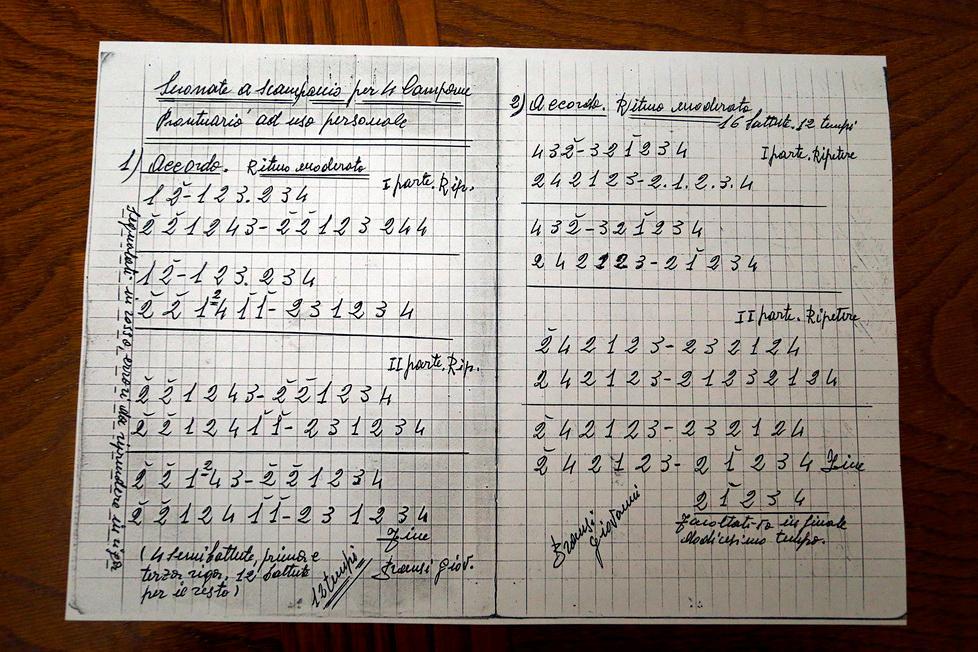 Suonate a scampanio per 4 Campane
Prontuario ad uso personale
1) Accordo. Ritmo moderato
I parte. Rip.
1 2̆ - 1 2 3 . 2 3 4
2̆ 2̆ 1 2 4 3 - 2̆ 2̆ 1 2 3 2 4 4
1 2̆ - 1 2 3 . 2 3 4
2̆ 2̆ 1 2 4 1̆ 1̆ - 2 3 1 2 3 4
II parte. Rip.
2̆ 2̆ 1 2 4 3 - 2̆ 2̆ 1 2 3 4
2̆ 2̆ 1 2 4 1̆ 1̆ - 2 3 1 2 3 4
2̆ 2̆ 1 2 4 3 - 2̆ 2̆ 1 2 3 4
2̆ 2̆ 1 2 4 1̆ 1̆ - 2 3 1 2 3 4
Fine
(4 semibattute, prima e
terza riga, 12 battute
per il resto)
12 tempi
Giov.
in rosso, errori da
2) Accordo. Ritmo moderato
16 battute. 12 tempi
4 3 2̆ - 3 2 1̆ 2 3 4
I parte. Ripetere
2 4 2 1 2 3 - 2 . 1 . 2 . 3 . 4
4 3 2̆ - 3 2 1̆ 2 3 4
2 4 2 1 2 3 - 2 1̆ 2 3 4
II parte. Ripetere
2̆ 4 2 1 2 3 - 2 3 2 1 2 4
2 4 2 1 2 3 - 2 1 2 3 2 1 2 4
2̆ 4 2 1 2 3 - 2 3 2 1 2 4
2̆ 4 2 1 2 3 - 2 1̆ 2 3 4 Fine
2 1̆ 2 3 4
Facoltativo in finale
dodicesimo tempo.
Giovanni